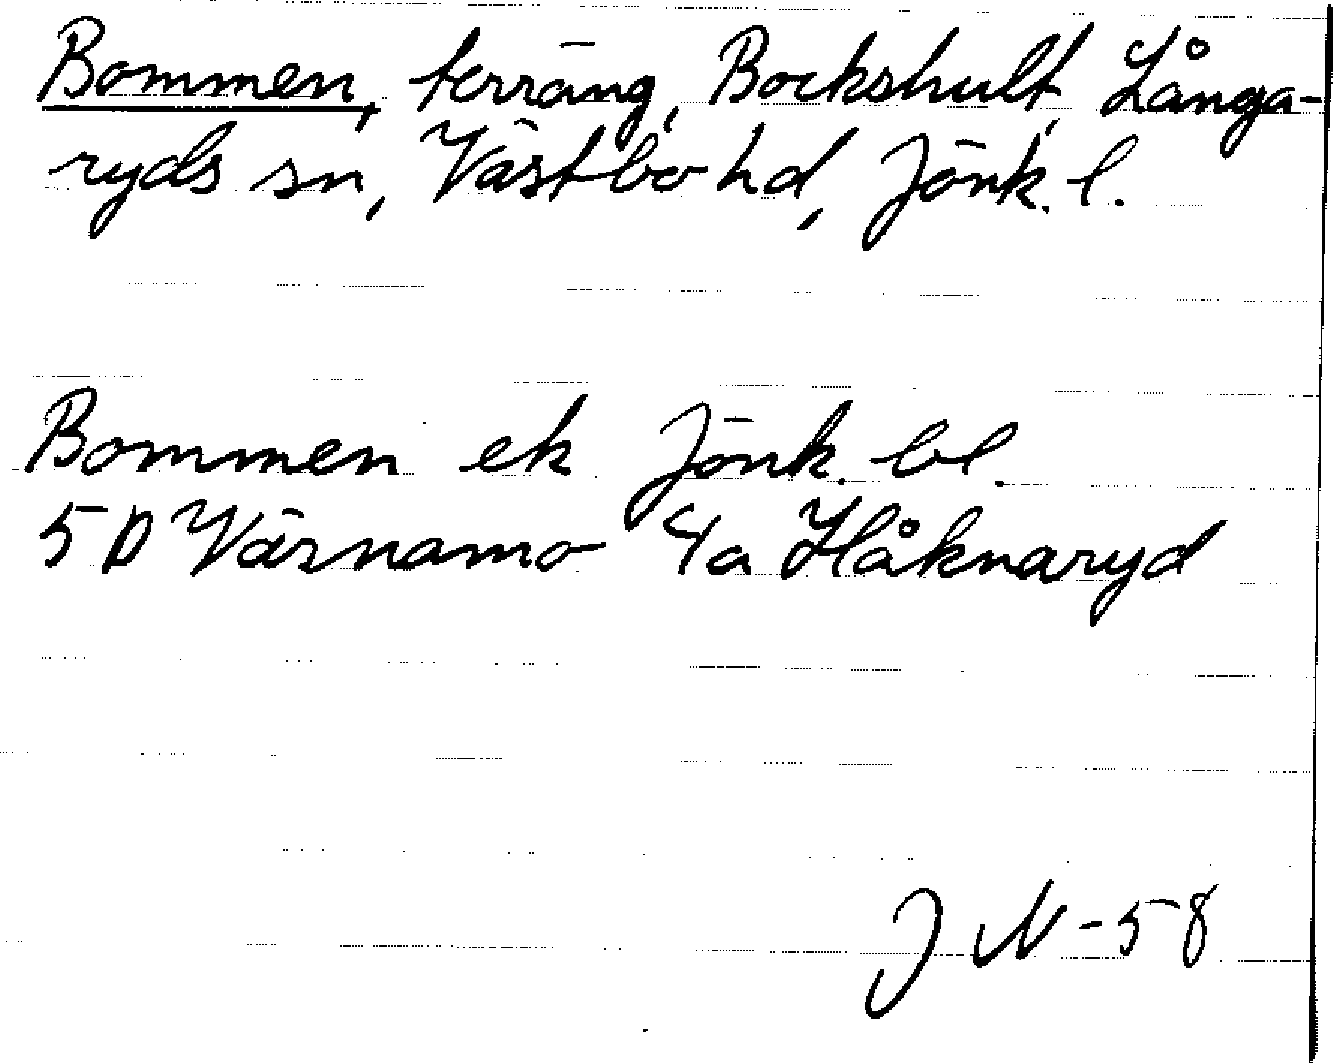 Bommen, terräng, Bockshult, Långa-
ryds sn, Västbo hd, Jönk. l.
Bommen ek Jönk. bl.
5D Värnamo 4a Håknaryd
J N -58